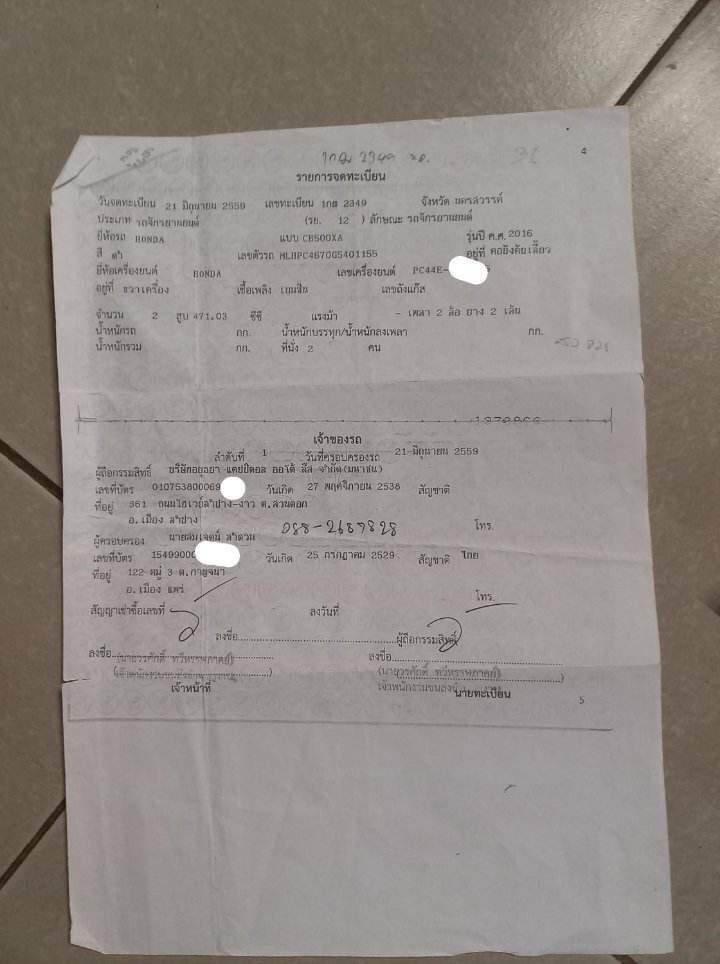 4
รายการจดทะเบียน
วันจดทะเบียน 21 มิถุนายน 2559 เลขทะเบียน 1กฮ 2349 จังหวัด นครสวรรค์
ประเภท รถจักรยานยนต์ (รย. 12 ) ลักษณะ รถจักรยานยนต์
ยี่ห้อรถ HONDA แบบ CB500XA รุ่นปี ค.ศ. 2016
สี ดำ เลขตัวรถ MLHPC4670G5401155 อยู่ที่ คอบังคับเลี้ยว
ยี่ห้อเครื่องยนต์ HONDA เลขเครื่องยนต์ PC44E-
อยู่ที่ ขวาเครื่อง เชื้อเพลิง เบนซิน เลขถังแก๊ส
จำนวน 2 สูบ 471.03 ซีซี แรงม้า - เพลา 2 ล้อ ยาง 2 เส้น
น้ำหนักรถ กก. น้ำหนักบรรทุก/น้ำหนักลงเพลา กก.
น้ำหนักรวม กก. ที่นั่ง 2 คน
เจ้าของรถ
ลำดับที่ 1 วันที่ครอบครองรถ 21 มิถุนายน 2559
ผู้ถือกรรมสิทธิ์ บริษัทอยุธยา แคปปิตอล ออโต้ ลีส จำกัด(มหาชน)
เลขที่บัตร 010753800069 วันเกิด 27 พฤศจิกายน 2538 สัญชาติ
ที่อยู่ 361 ถนนไฮเวย์ลำปาง-งาว ต.สวนดอก
อ.เมือง ลำปาง 088-2689828 โทร.
ผู้ครอบครอง นายสมเจตน์
เลขที่บัตร 1549900 วันเกิด 25 กรกฎาคม 2529 สัญชาติ ไทย
ที่อยู่ 122 หมู่ 3 ต.กาญจนา
อ.เมือง แพร่ โทร.
สัญญาเช่าซื้อเลขที่ ลงวันที่
ลงชื่อ ผู้ถือกรรมสิทธิ์
ลงชื่อ ลงชื่อ
(นายวรศักดิ์ (นายวรศักดิ์
เจ้าพนักงานขนส่ง
เจ้าหน้าที่ นายทะเบียน
5